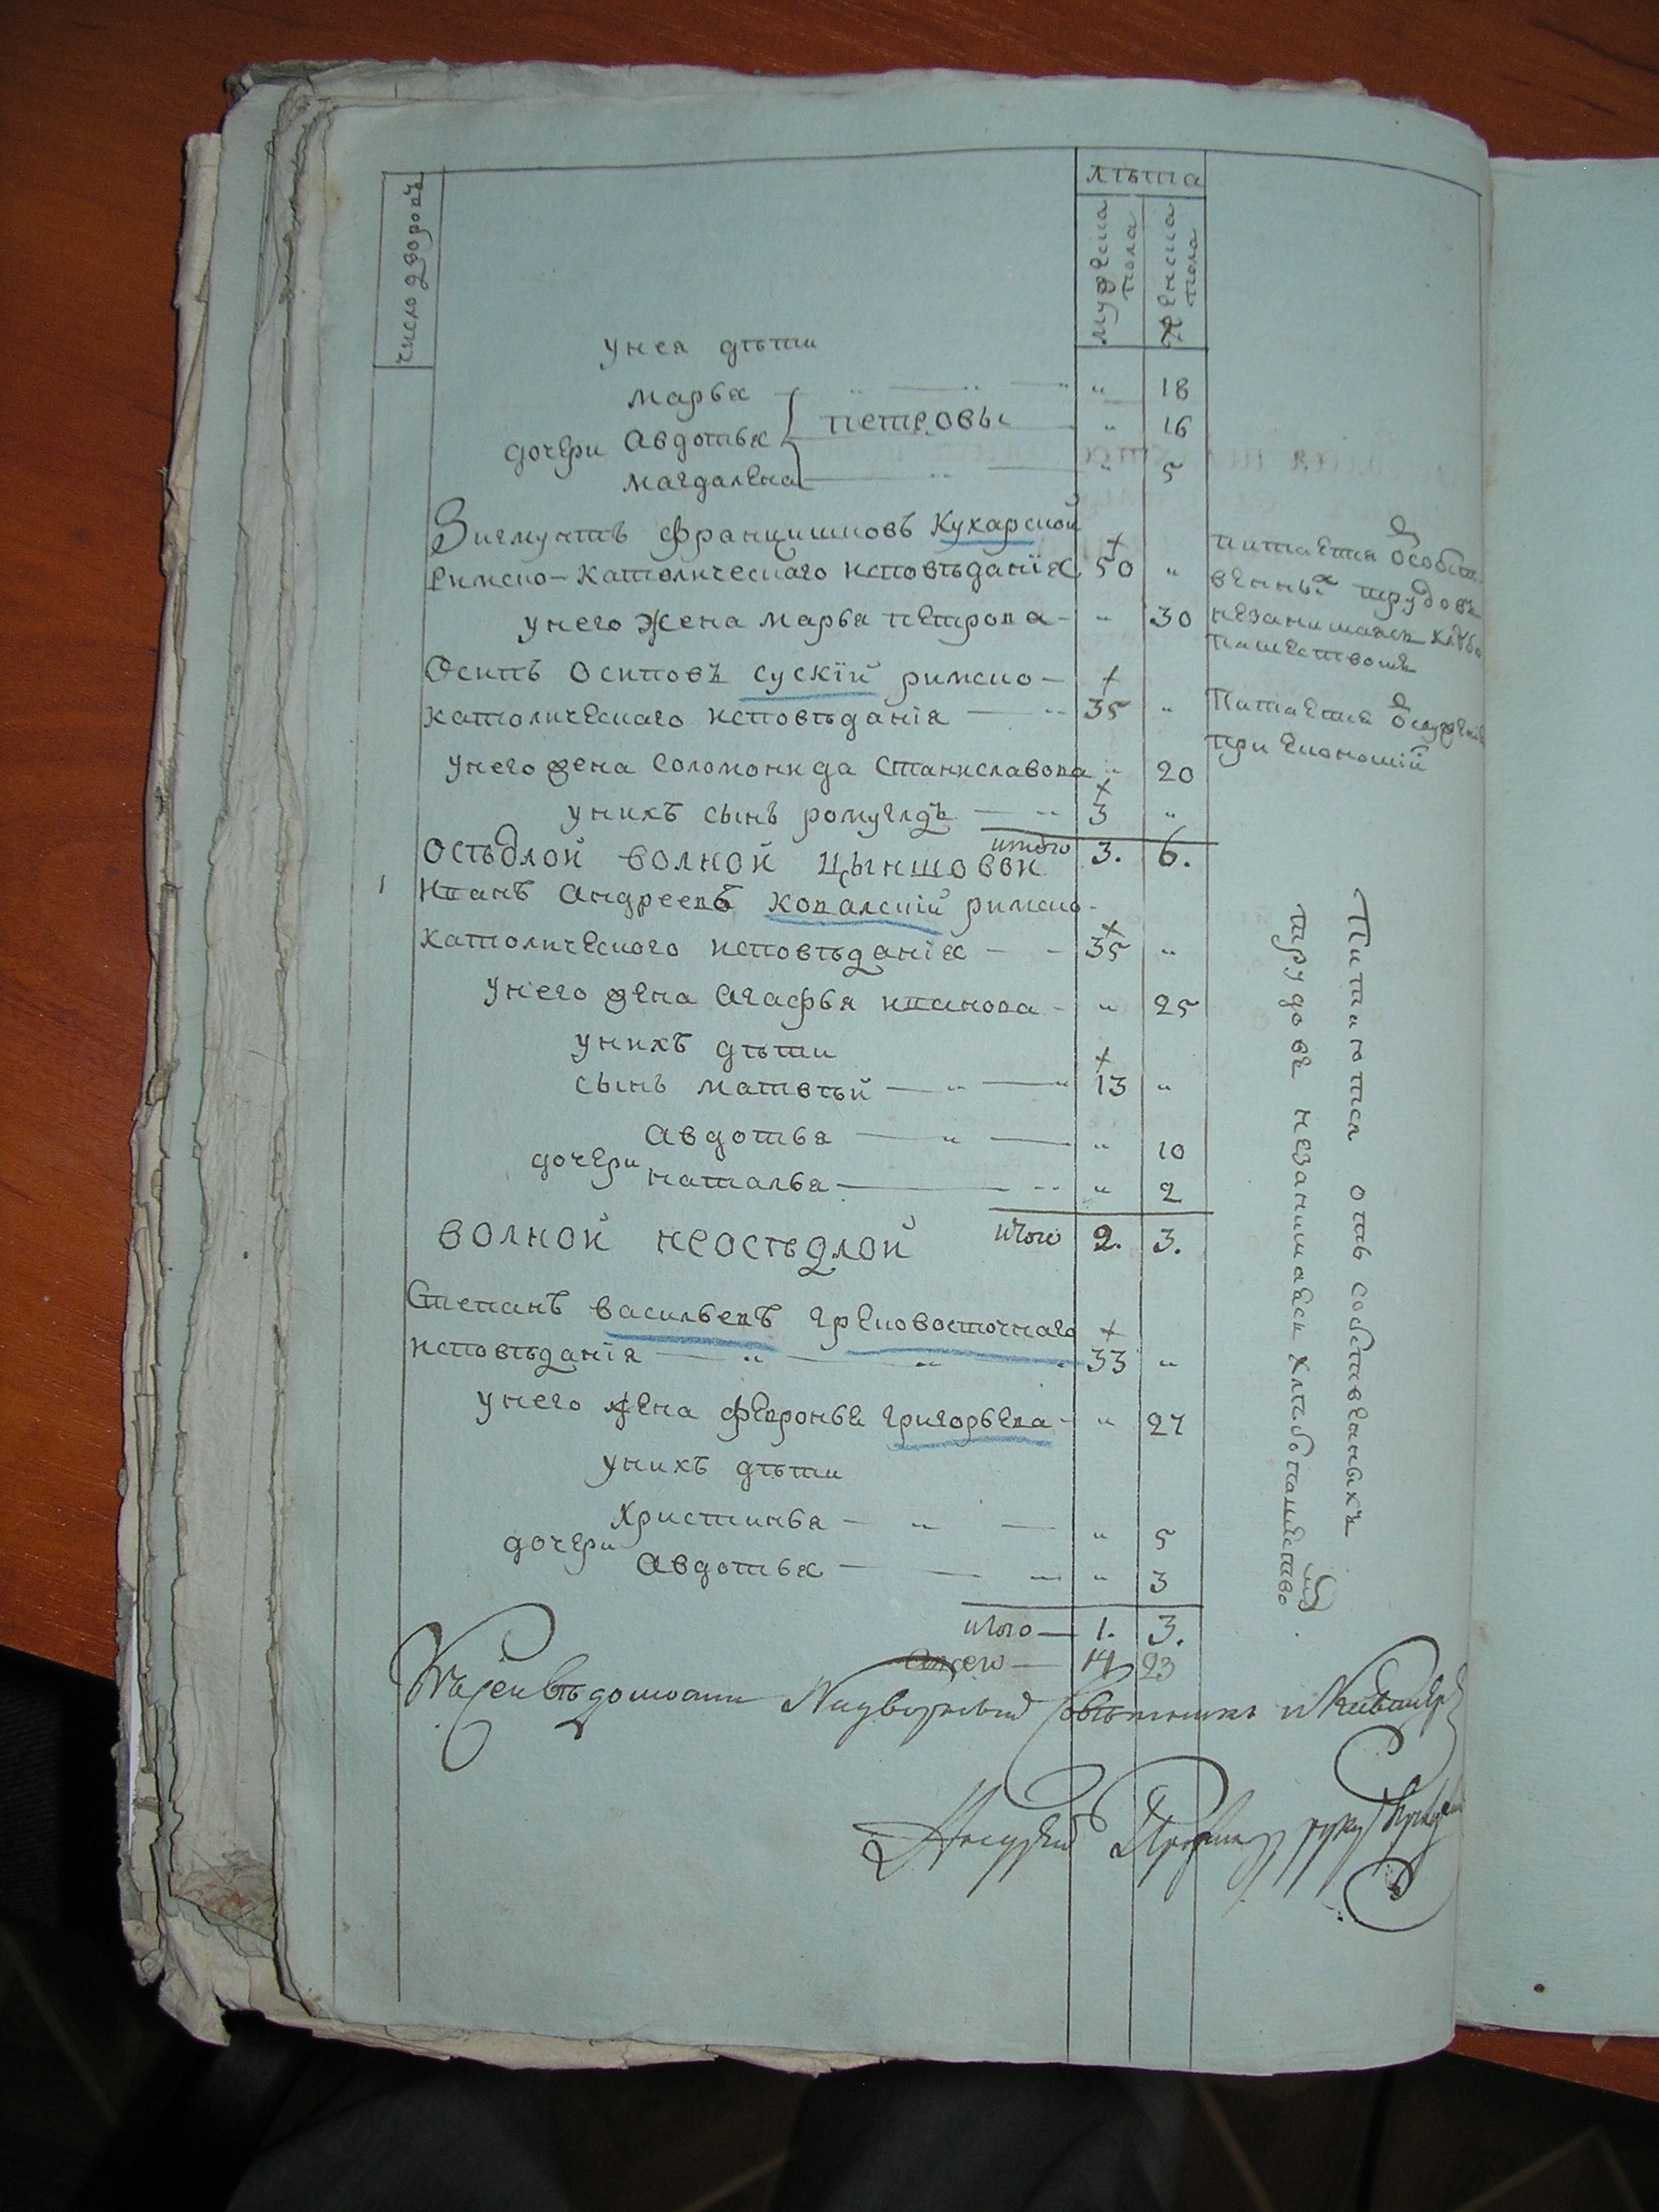 число дворовъ
лѣта
мужеска пола
женска пола
у нея дѣти
марья " 18
дочери Авдотья петровы " 16
магдалена " 5
Зигмунтъ францишковъ Кухарской
Римско-католическаго исповѣданія 50 "
у него жена марья петрова - " 30
питается
трудовъ
незанимаясь хлѣбо
пашествомъ
Осипъ Осиповъ сускїй римско-
католическаго исповѣданія 35 "
Питается
при Економїй
у него жена Соломонида Станиславова " 20
у нихъ сынъ ромуалдъ 3 "
итого 3. 6.
осѣдлой волной цыншовой
1 иванъ Андреевъ ковалскій римско-
католического исповѣданія - - 35 "
у него жена Агафья иванова - " 25
у нихъ дѣти
сынъ матвѣй 13 "
Авдотья " 10
дочери наталья " 2
итого 2. 3.
Питаются отъ собственныхъ
трудовъ незанимаясь хлѣбопашество
волной неосѣдлой
Степанъ васильевъ грековосточнаго
исповѣданія 33 "
у него жена февронья григорьева - " 27
у нихъ дѣти
Христинья - " 5
дочери Авдотья " 3
итого 1. 3.
всего 14 23
Къ сей вѣдомости Надворный Совѣтникъ и Кавалеръ
руку